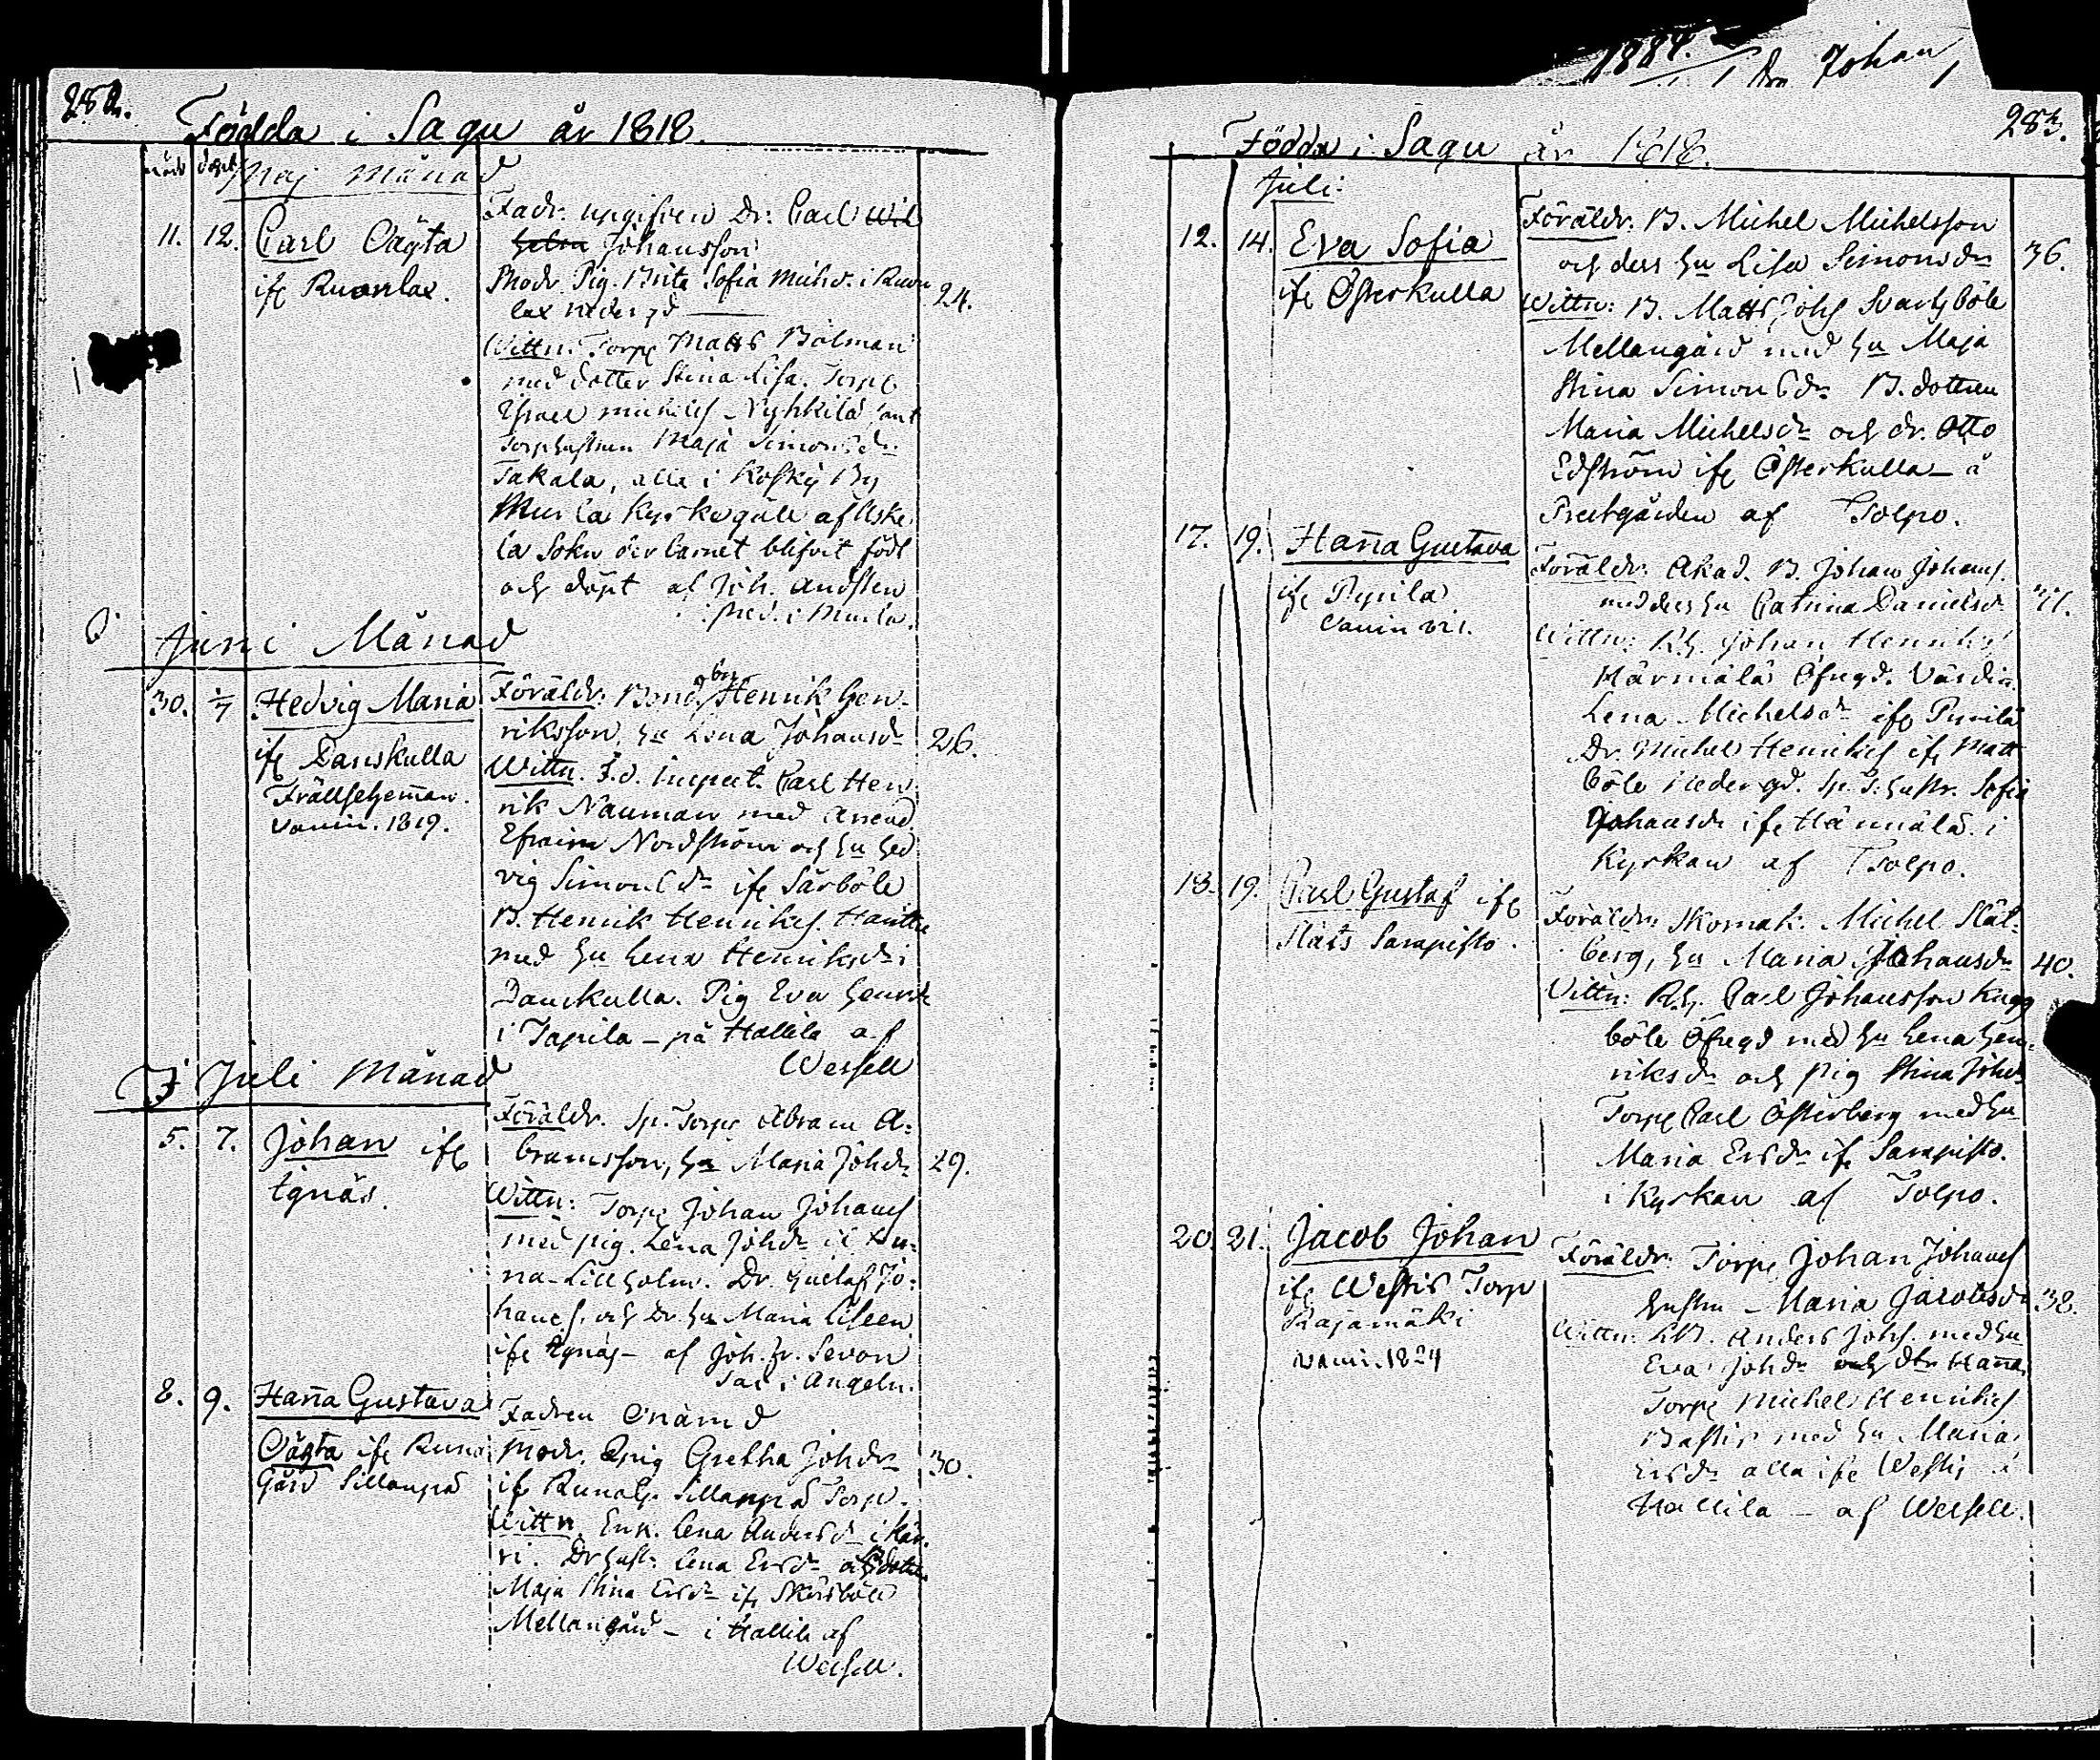 282.
Födda i Sagu år 1818.
Maj Månad
11. 12. Carl Oägta
ifr Ruonlax.
Fadr. upgifven Dr. Carl Wil
helm Johansson
Modr. Pig. Brita Sofia Michsd. i Ruon
lax nedergd
24.
Wittn: Torp Matts Bolman
med dotter Stina Lisa. Torp
Israel Michelss Nyhkilä samt
Torphustrun Maja Simonsdr
Takala, alla i Koski By
Murla Kyrkogäll af Uske
la Sokn der barnet blifvit födt
och döpt af Joh.
Pred. i Murla.
Juni Månad
30. 1/7 Hedvig Maria
ifr Danskulla
Frälsehemman.
vaccin. 1819.
Föräldr: Bond Henrik Hen-
riksson, hu Lena Johansdr
26.
Wittn. Carl Hen
rik Nauman med
Efraim Nordström och hu Hed
vig Simonsdr ifr Särböle
B. Henrik Henrikss.
med hu Lena Henriksdr i
Danskulla. Pig Eva Henrik
i Tapila - på Hallila af
Wessell
Juli Månad
5. 7. Johan ifr
Egnäs.
Föräldr. Sp. Torp Abram A-
bramsson, hu Maria Johdr
29.
Wittn: Torp Johan Johanss
med pig. Lena Johdr
na-Lillholm. Dr. Gustaf Jo-
hanss. och Dr hu Maria
ifr Egnäs - af Joh. Fr. Sevon
Sac i Angeln.
8. 9. Hanna Gustava
Oägta ifr Runa
Gård Sillanpä
Fadren Onämd
Modr. Pig Gretha Johdr
ifr Sillanpä Torp.
30.
Wittn. Enk. Lena Andersdr i Kär
ri. Dr hust. Lena Ersdr
Maja Stina Ersdr ifr
Mellangård - i Hallila af
Wessell.
1884.
Johan
283.
Födda i Sagu år 1818.
Juli.
12. 14. Eva Sofia
ifr Österkulla
Föräldr: B. Michel Michelsson
och dess hu Lisa Simonsdr
36.
Wittn: B. Matts Johs Svartsböle
Mellangård med hu Maja
Stina Simonsdr B. dottren
Maria Michelsdr och dr. Otto
Edström ifr Österkulla - å
Prestgården af Tolpo.
17. 19. Hanna Gustava
ifr Pyrilä
Föräldr: Akad. B. Johan Johanss.
med dess hu Catrina Danielsdr
Wittn: Rh. Johan Henrikss
Härmälä Öfvegd. Värdin
Lena Michelsdr ifr Pyrilä
Dr. Michel Henrikss ifr Matt
böle Nedergd. Sp. T. hustr. Sofia
Johansdr ifr Härmälä. i
Kyrkan af Tolpo.
18. 19. Carl Gustaf ifr
Släts Sarapisto.
Föräldr: Skomak: Michel Slät-
berg, hu Maria Johansdr
40.
Wittn: Rh. Carl Johansson Kugg
böle Öfvegd med hu Lena Hen-
riksdr och pig Stina Johdr
Torp Carl Österberg med hu
Maria Ersdr ifr Sarapisto.
i Kyrkan af Tolpo.
20. 21. Jacob Johan
ifr Westis Torp
Rajamäki
Föräldr: Torp Johan Johanss
hustru Maria Jacobsdr
38.
Wittn: Anders Johs. med hu
Eva Johdr och dtr Hanna
Torp Michel Henrikss
Bastis med hu Maria
Ersdr alla ifr Westis i
Hallila - af Wessell.